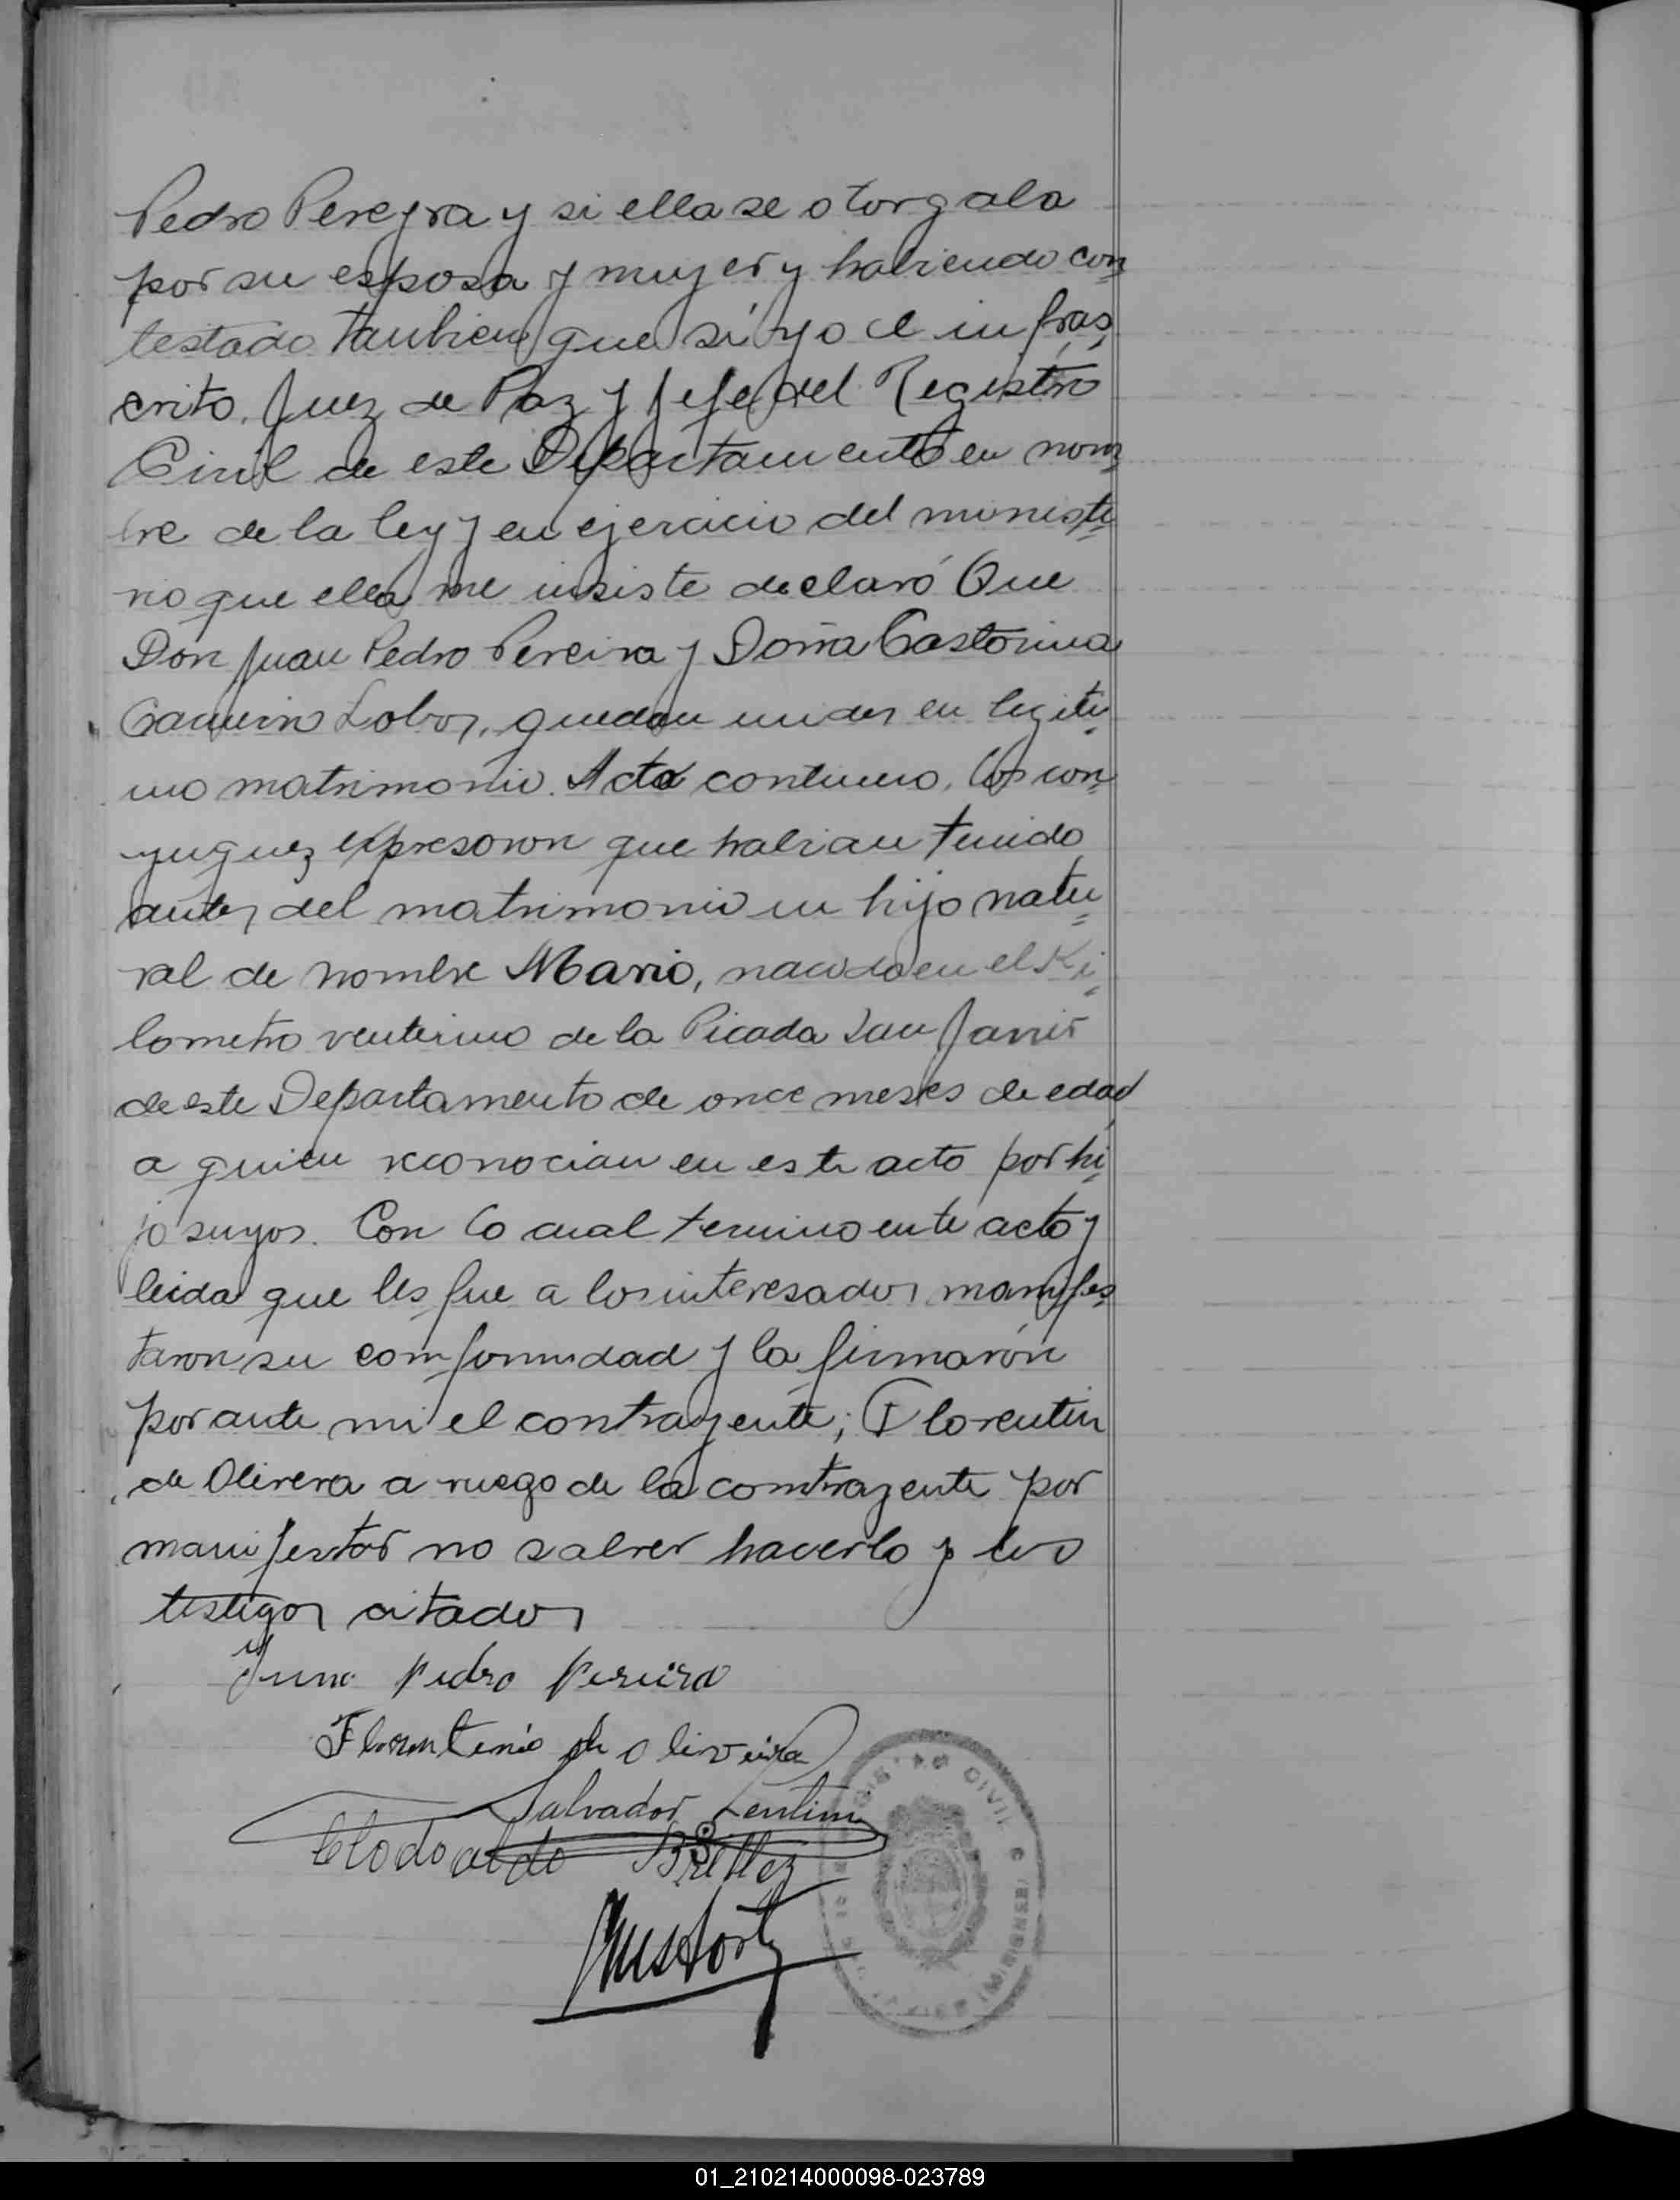 Pedro Pereyra y si ella se otorgala
por su esposa y mujer y habiendo con=
testado tambien que sí yo el infras=
crito, Juez de Paz y Jefe del Registro
Civil de este Departamento en nom=
bre de la ley y en ejercicio del ministe=
rio que ella me insiste declaró Que
Don Juan Pedro Pereira y Doña Castorina
Lobos, quedan unidos en legiti=
mo matrimonio. Acto continuo, los con=
yuguez expresaron que habian tenido
antes del matrimonio un hijo natu=
ral de nombre Mario, nacido en el Ki=
lometro venteiuno de la Picada San Javier
de este Departamento de once meses de edad
a quien reconocian en este acto por hi=
jo suyos. Con lo cual termino ente acto y
leida que les fue a los interesados manifes=
taron su conformidad y la firmarón
por ante mi el contrayente; Florentin
de Olivera a ruego de la contrayente por
manifestar no salver hacerlo y los
testigos citados
Juan Pedro Pereira
Florentino de Oliveira
Salvador Lentini
Clodoaldo Britez
CIVIL
01_210214000098-023789